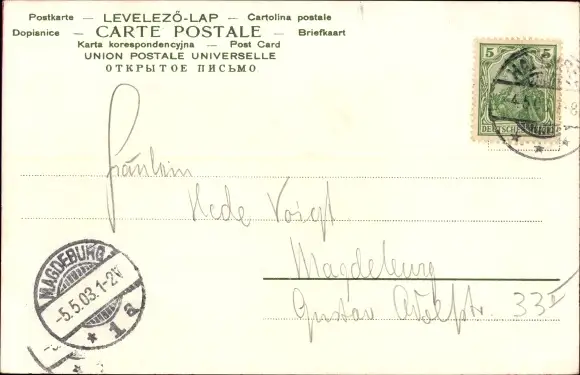 Postkarte — LEVELEZŐ-LAP — Cartolina postale
Dopisnice — CARTE POSTALE — Briefkaart
Karta korespondencyjna — Post Card
UNION POSTALE UNIVERSELLE
ОТКРЫТОЕ ПИСЬМО
5 5
DEUTSCHES
Fräulein
Hede Voigt
Magdeburg
Gustav Adolfstr. 33 I
MAGDEBURG
-5.5.03.1-2N
* 1 a